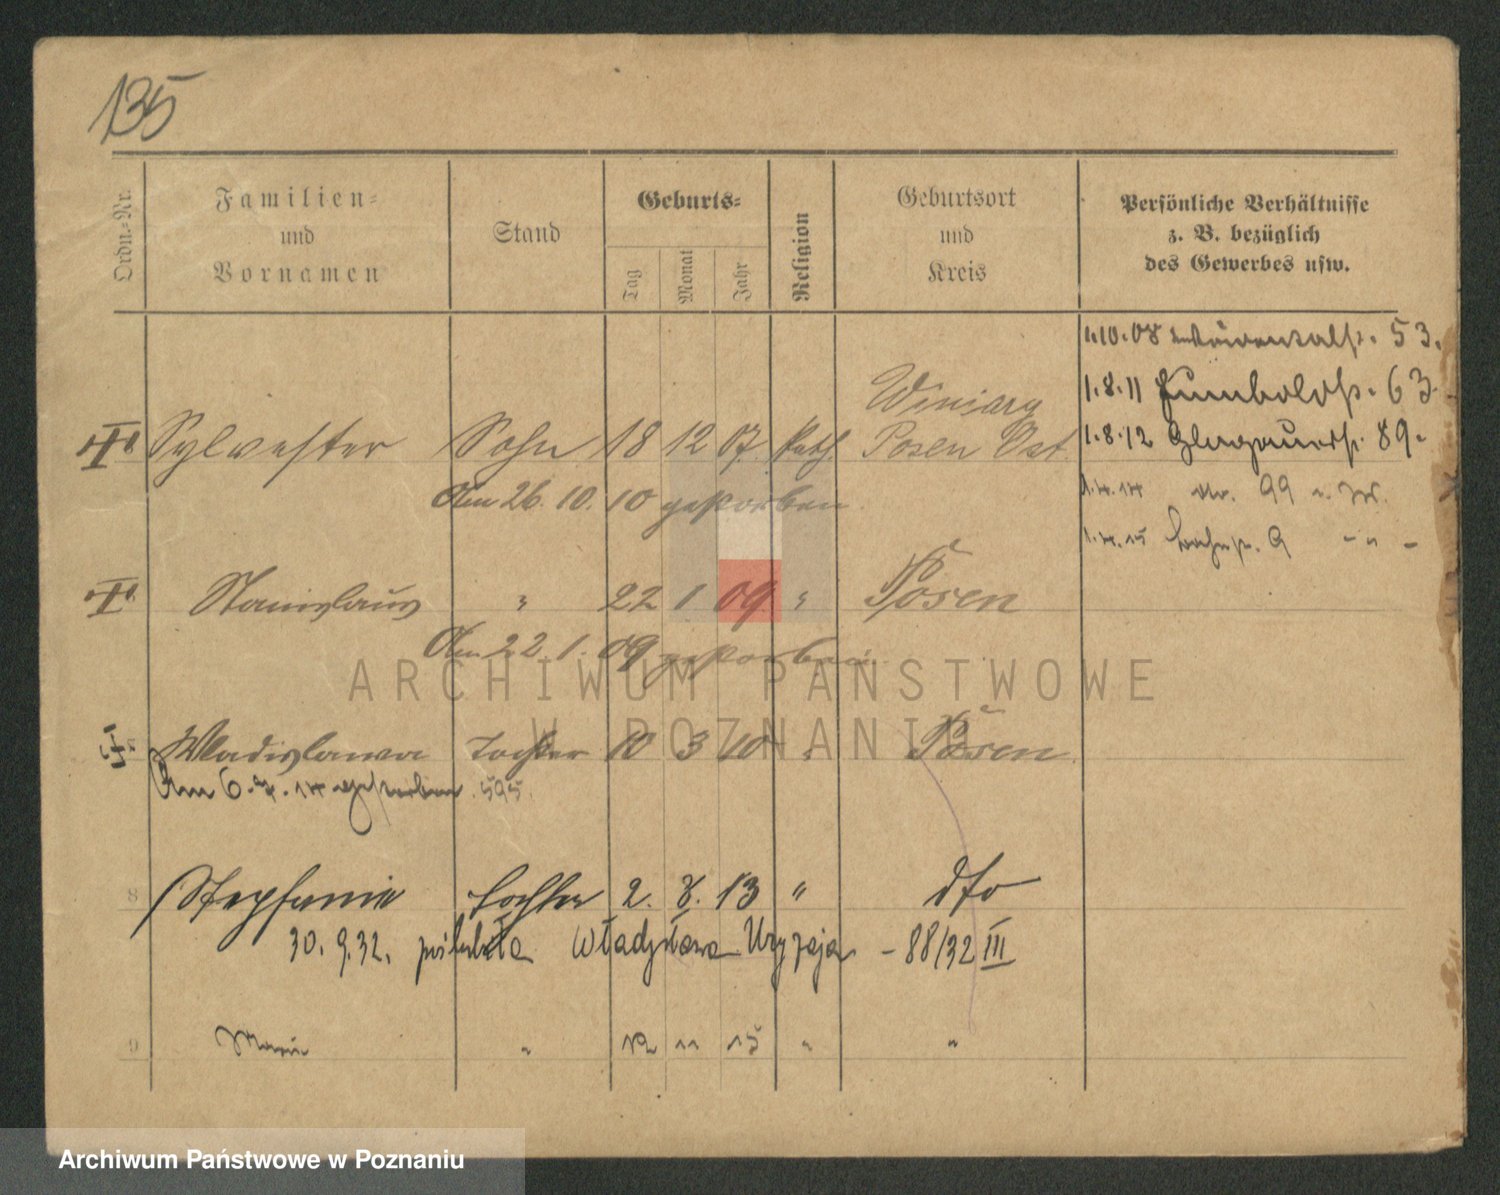 135
Ordn.-Nr.
Familien-
und
Vornamen
Stand
Geburts-
Tag
Monat
Jahr
Religion
Geburtsort
und
Kreis
Persönliche Verhältnisse
z. B. bezüglich
des Gewerbes usw.
1.10.08 53.
1.8.11 Humboldtstr. 63.
Winiary
Sylvester Sohn 18 12 07. kath. Posen Ost.
1.8.12 Glogauerstr. 89.
Am 26. 10. 10 gestorben
1.4.14 99
1.4.15 9
Stanislaus " 22 1 09 " Posen
Am 22. 1. 09 gestorben
ARCHIWUM PAŃSTWOWE
W POZNANIU
Wladislawa Tochter 10 3 10 " Posen
Am 6. 7. 14 gestorben. 595.
8 Stephanie Tochter 2. 8. 13 " dto
30. 9. 32. poślubiła Władysława Uryzaja - 88/32 III
9 Marie " 12 11 15 " "
Archiwum Państwowe w Poznaniu